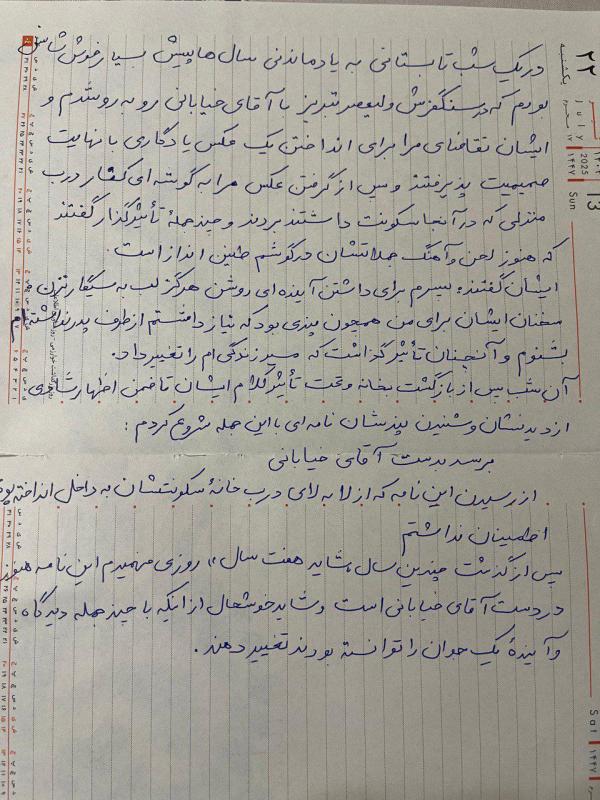 در یک شب تابستانی به یادماندنی سال‌ها پیش بسیار خوش شانس
بودیم که در سنگفرش ولیعصر تبریز با آقای خیابانی رو به رو شدم و
ایشان تقاضای مرا برای انداختن یک عکس یادگاری با نهایت
صمیمیت پذیرفتند و پس از گرفتن عکس مرا به گوشه‌ای کنار درب
منزلی که در آنجا سکونت داشتند بردند و چند جملهٔ تأثیرگذار گفتند
که هنوز لحن و آهنگ جملاتشان در گوشم طنین انداز است.
ایشان گفتند: پسرم برای داشتن آینده‌ای روشن هرگز لب به سیگار نزن
سخنان ایشان برای من همچون پندی بود که نیاز داشتم از طرف پدر نداشته‌ام
بشنوم و آنچنان تأثیر گذاشت که مسیر زندگی‌ام را تغییر داد.
آن شب پس از بازگشت بخانه و تحت تأثیر کلام ایشان تا ضمن اظهار شادی
از دیدنشان و شنیدن پندشان نامه‌ای با این جمله شروع کردم:
برسد بدست آقای خیابانی
از رسیدن این نامه که از لا به لای درب خانهٔ سکونتشان به داخل انداخته بودم
اطمینان نداشتم
پس از گذشت چندین سال «شاید هفت سال» روزی فهمیدم این نامه هنوز
در دست آقای خیابانی است و شاید خوشحال از اینکه با چند جمله دیدگاه
و آیندهٔ یک جوان را توانسته بودند تغییر دهند.
۲۲
یکشنبه
2025
۱۴۴۷
13
Sun
Sat
۱۴۴۷